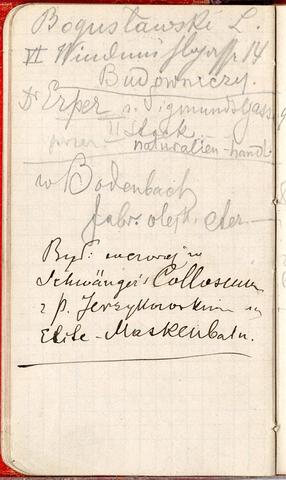 Bogusławski L.
VI Windmühlgasse 14
Budowniczy.
Dr Erper n. Sigmundsgass
II Stock
naturalien-handl
w Bodenbach
fabr. olejk. eter
Był: wczoraj w
Schwänger's Collosseum
z p. Jerzykowskim na
Elite-Maskenbaln.